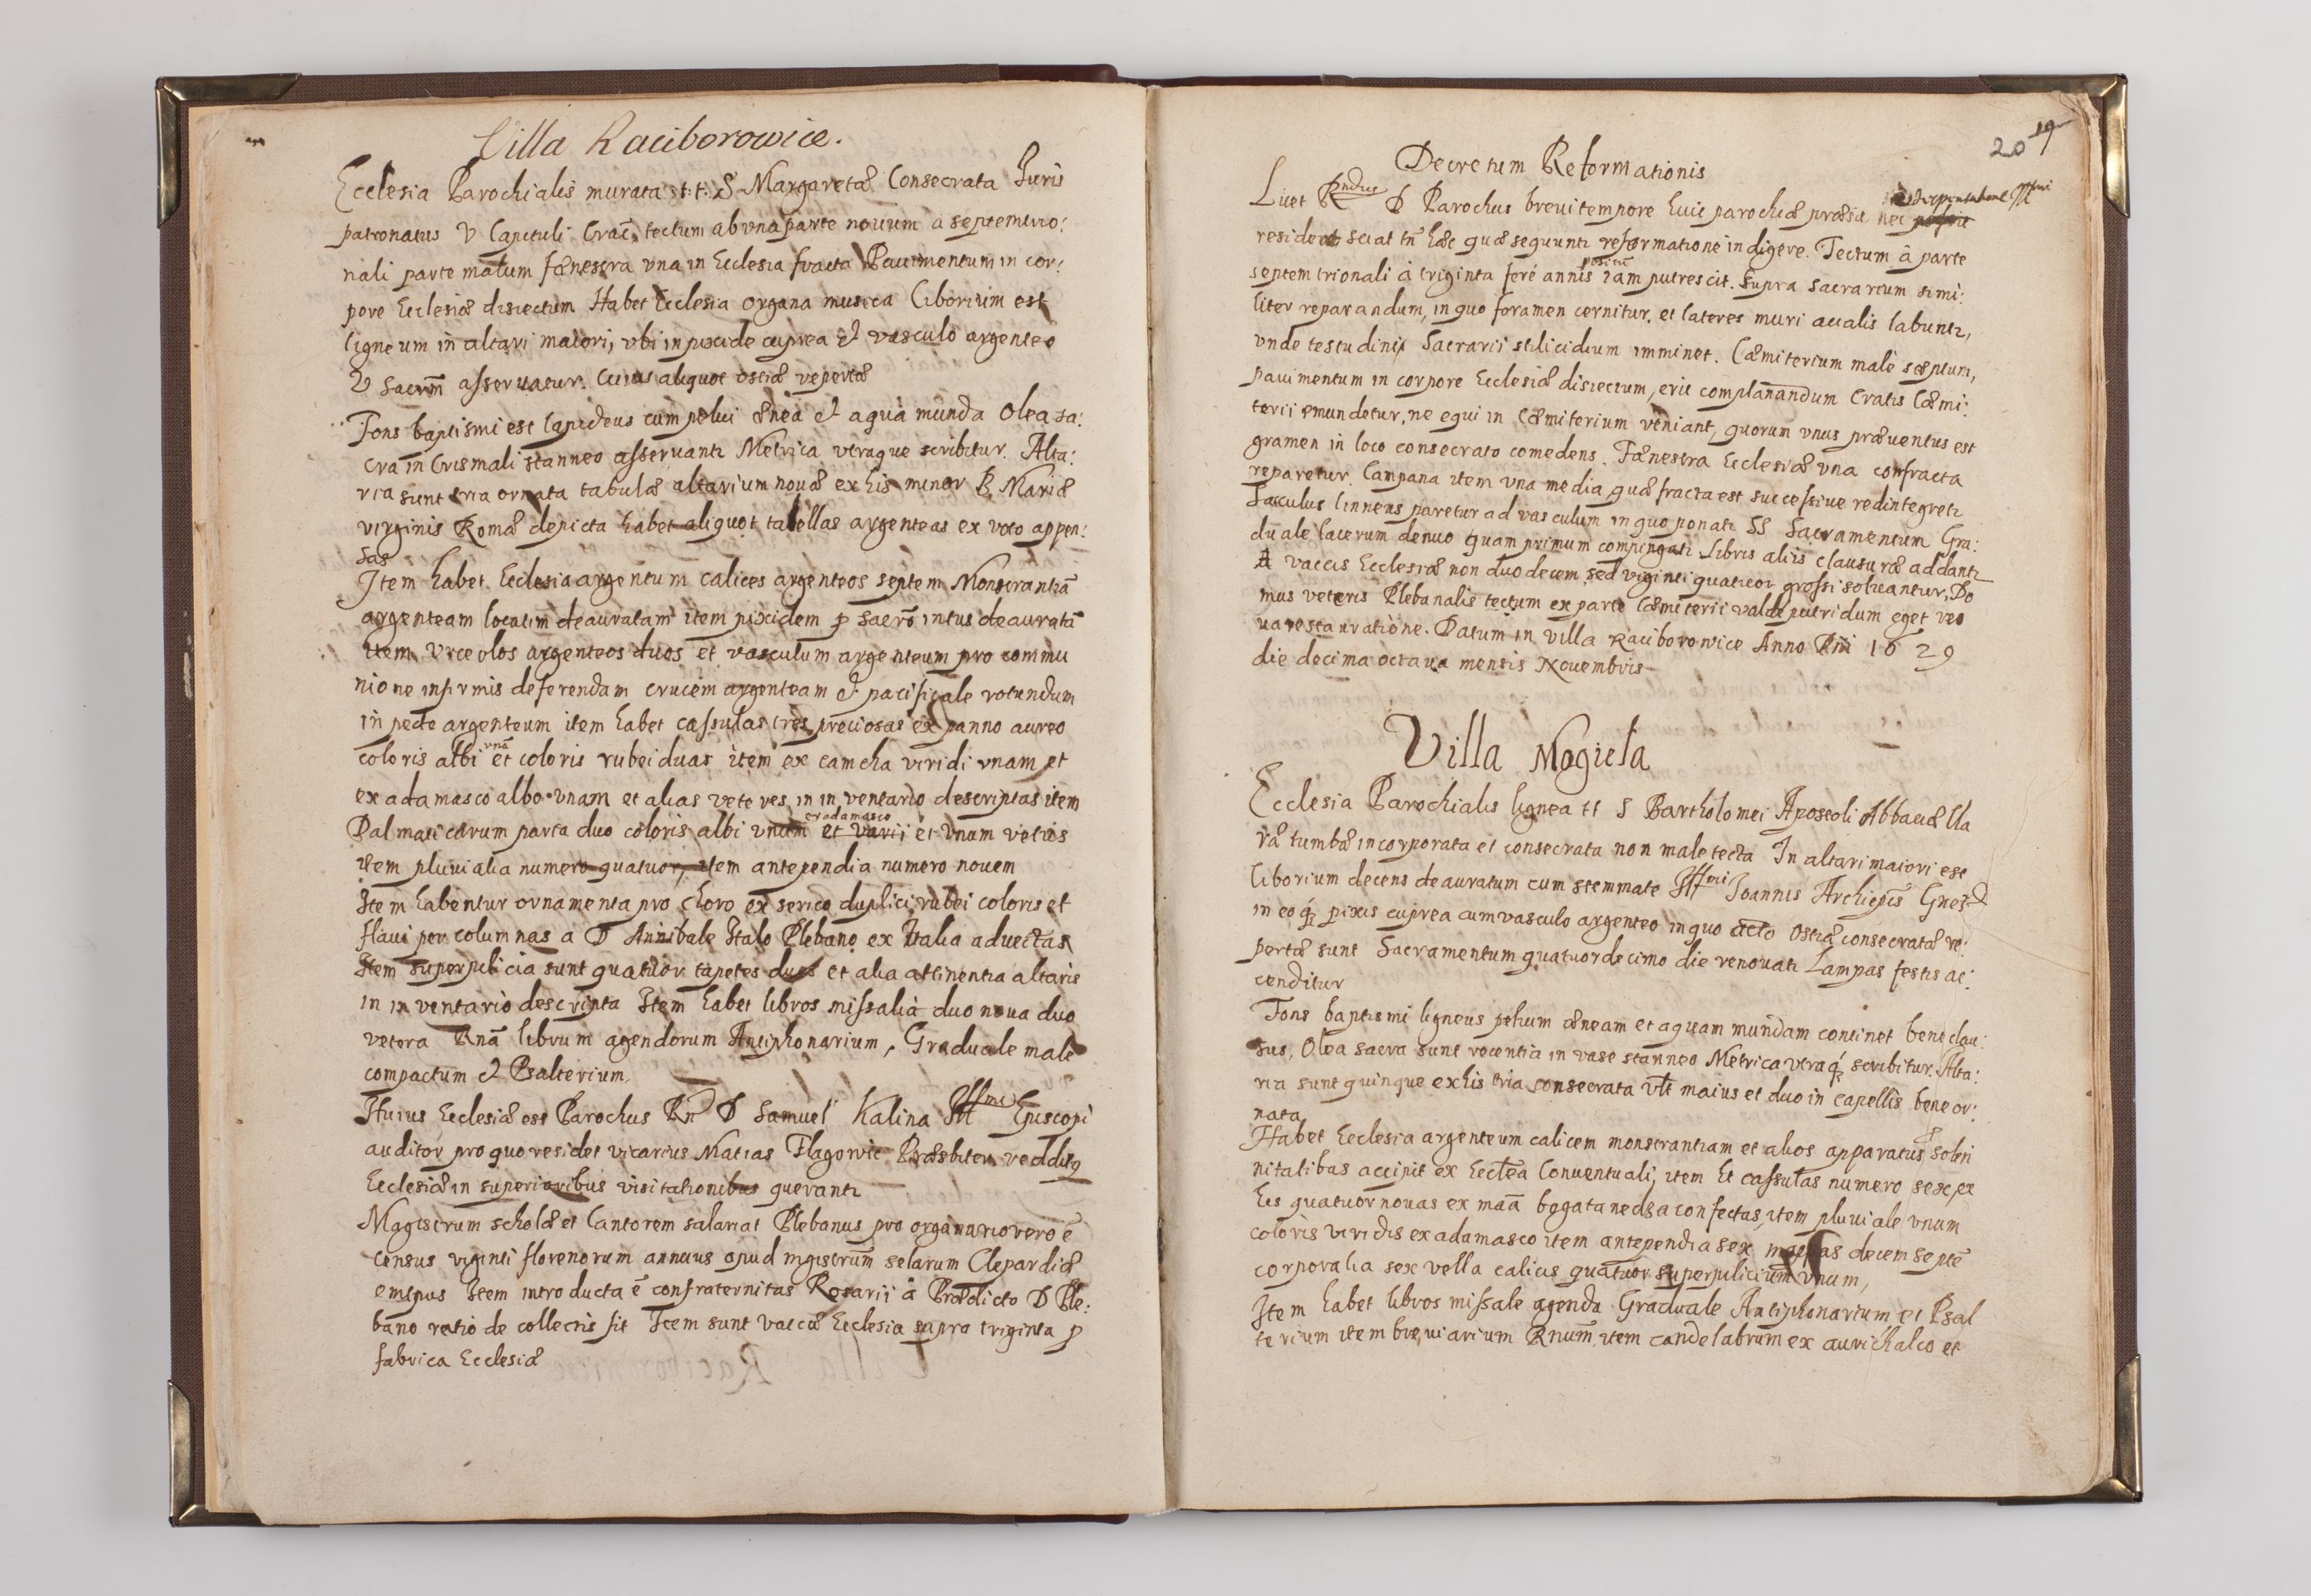 Villa Raciborowice.
Ecclesia Parochialis murata t.t. S Margaretæ Consecrata Iuris
patronatus V Capituli Crac̄, tectum ab vna parte nouum a septemtrio:
nali parte malum fænestra vna in Ecclesia fracta Pauimentum in cor:
pore Ecclesiæ disiectum Habet Ecclesia organa musica Ciborium est
ligneum in altari maiori, vbi in pixide cuprea et vasculo argenteo
V Sacrm̄ asseruatur. Cuius aliquot ostiæ repertæ
Fons baptismi est lapideus cum pelui ænea et aqua munda Olea sa:
cra in Crismali stanneo asseruantr Metrica vtraque scribitur. Alta:
ria sunt tria ornata tabulæ altarium nouæ ex his minor B. Mariæ
virginis Romæ depicta habet aliquot tabellas argenteas ex voto appen:
sas
Item habet Ecclesia argentum calices argenteos septem Monstrantiā
argenteam locatim deauratam item pixidem p Sacrō intus deauratā
item vrceolos argenteos duos et vasculum argenteum pro commu
nione infirmis deferendam crucem argenteam et pacificale rotundum
in pede argenteum item habet cassulas tres preciosas ex panno aureo
coloris albi vnā et coloris rubei duas item ex camcha viridi vnam et
ex adamasco albo vnam et alias veteres in inventario descriptas item
Dalmaticarum paria duo coloris albi vnum ex adamasco et varii et vnum vetus
item pluuialia numero quatuor, item antependia numero nouem
Item habentur ornamenta pro choro ex serico duplici rubei coloris et
flaui per columnas a D Annibale Italo Plebano ex Italia aduectas
Item superpilicia sunt quatuor tapetes duos et alia attinentia altaris
in inventario descripta Item habet libros missalia duo noua duo
vetera Rnā librum agendorum Antiphonarium, Graduale male
compactum et Psalterium,
Huius Ecclesiæ est Parochus Rnd D Samuel Kalina Illmi Episcopi
auditor pro quo residet vicarius Matias Flagowic Præsbiter redditq
Ecclesiæ in superioribus visitationibus querantr
Magistrum scholæ et Cantorem salariat Plebanus pro organario vero ē
census viginti florenorum annuus apud mgistrum selarum Clepardiæ
emptus Item introducta ē confraternitas Rosarii a Prædicto D Ple:
bano ratio de collectis fit Item sunt vaccæ Ecclesia supra triginta p
fabrica Ecclesiæ
20 19
Decretum Reformationis
Licet Rndus D Parochus breui tempore huic parochiæ præsit nec Illmi
resideat sciat tn̄ hæc quæ sequuntr reformatione indigere. Tectum à parte
septemtrionali à triginta feré annis positū iam putrescit. Supra Sacrarium simi:
liter reparandum, in quo foramen cernitur, et lateres muri aualis labuntr,
vnde testudini Sacrarii stilicidium imminet. Cæmiterium malè sæptum,
pauimentum in corpore Ecclesiæ disiectum, erit complanandum Cratis Cæmi:
terii emundetur, ne equi in Cæmiterium veniant, quorum vnus præuentus est
gramen in loco consecrato comedens. Fænestra Ecclesiæ vna confracta
reparetur. Campana item vna media quæ fracta est successiue redintegretr
Sacculus linneus paretur ad vasculum in quo ponatr SS Sacramentum Gra:
duale lacerum denuo quam primum compingatr Libris aliis clausuræ addantr
A vaccis Ecclesiæ non duodecem sed viginti quatuor grossi soluantur, Do
mus veteris Plebanalis tectum ex parte Cæmiterii valde putridum eget no
ua restauratione. Datum in villa Raciborowice Anno Dni 1629
die decima octaua mensis Nouembris
Villa Mogieła
Ecclesia Parochialis lignea tt S Bartholomei Apostoli Abbatiæ Cla
ræ tumbæ incorporata et consecrata non male tecta In altari maiori est
Ciborium decens deauratum cum stemmate Illmi Joannis Archiepis̄ Gnesn
in eoq; pixis cuprea cum vasculo argenteo in quo octo Ostiæ consecratæ re:
pertæ sunt Sacramentum quatuordecimo die renouatr Lampas festis ac:
cenditur
Fons baptismi ligneus peluim æneam et aquam mundam continet bene clau:
sus, Olea sacra sunt recentia in vase stanneo Metrica vtraq; scribitur. Alta:
ria sunt quinque ex his tria consecrata vlt maius et duo in capellis bene or:
nata
Habet Ecclesia argenteum calicem monstrantiam et alios apparatus solen
nitatibas accipit ex Ecclea Conuentuali, item Et cassulas numero sex, ex
his quatuor nouas ex maā bogata nedza confectas, item pluuiale vnum
coloris viridis ex adamasco item antependia sex, mappas decem septē
corporalia sex vella calicis quatuor superpilicium vnum,
Item habet libros missale agenda Graduale Antiphonarium et Psal
terium item breuiarium Rnum̄ item candelabrum ex aurichalco et